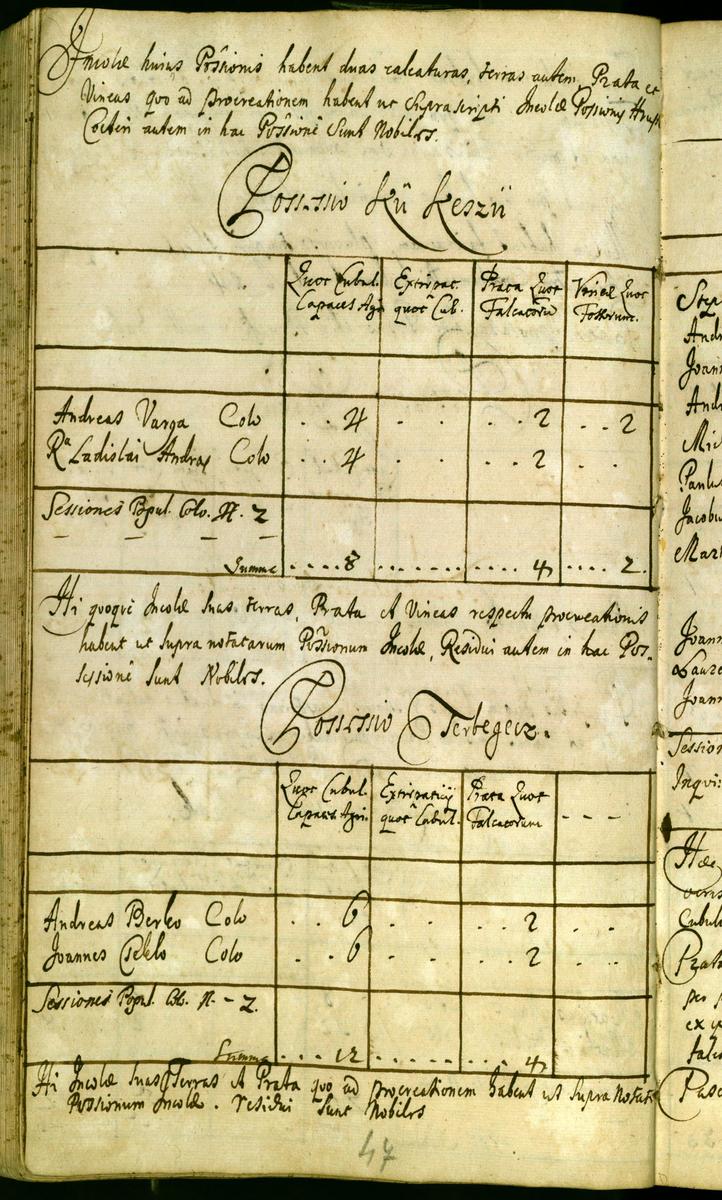 Incolæ huius Possionis habent duas calcaturas, terras autem Prata et
Vineas quo ad procreationem habent ut suprascripti Incolæ Possionis
Cæteri autem in hac Possione sunt Nobiles.
Possessio Kü Keszü
Quot Cubul. Extirpat. Prata Quot Vineæ Quot
Capaces Agri quot Cub. Falcatorum Fossorum.
Andreas Varga Colo . . 4 . . . . 2 . . 2
Ra Ladislai Andras Colo . . 4 . . . . 2 . .
Sessiones Popul. Colo. N. 2
Summa . . . . 8 . . . . . . . . . . 4 . . . . 2.
Hi quoque Incolæ suas terras, Prata et Vineas respectu procreationis
habent ut supra notatarum Possionum Incolæ, Residui autem in hac Pos-
sessione sunt Nobiles.
Possessio Terbegecz.
Quot Cubul. Extirpatiy Prata Quot
Capaces Agri. quot Cubul. Falcatorum - - -
Andreas Berko Colo . . 6 . . . . 2 . .
Joannes Cseklo Colo . . 6 . . . . 2 . .
Sessiones Popul. Col. N. - 2.
Summa . . . . 12 . . . . . . . . . 4
Hi Incolæ suas Terras et Prata quo ad procreationem habent ut supra notat.
Possionum Incolæ. residui sunt Nobiles
47
Step
Andr
Joan
Andr
Mic
Paul
Jacobu
Mar
Joann
Laure
Joan
Session
Inqui
Hæ
Cubul
Prata
per
ex
falc
Pasc